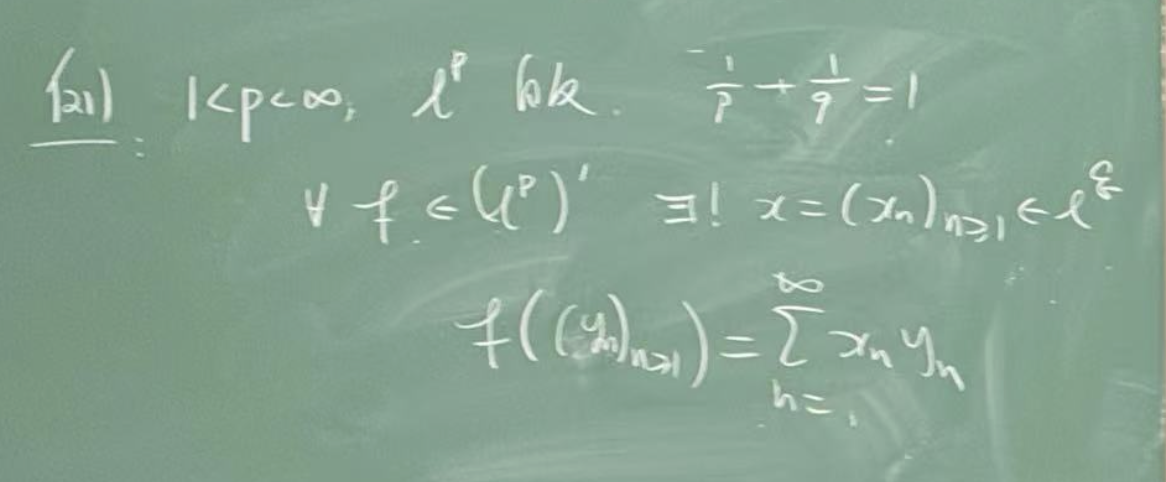 1<p<∞, l^p 1/p + 1/q = 1
∀ f ∈ (l^p)' ∃! x = (x_n)_{n≥1} ∈ l^q
f((y_n)_{n≥1}) = ∑_{n=1}^{∞} x_n y_n